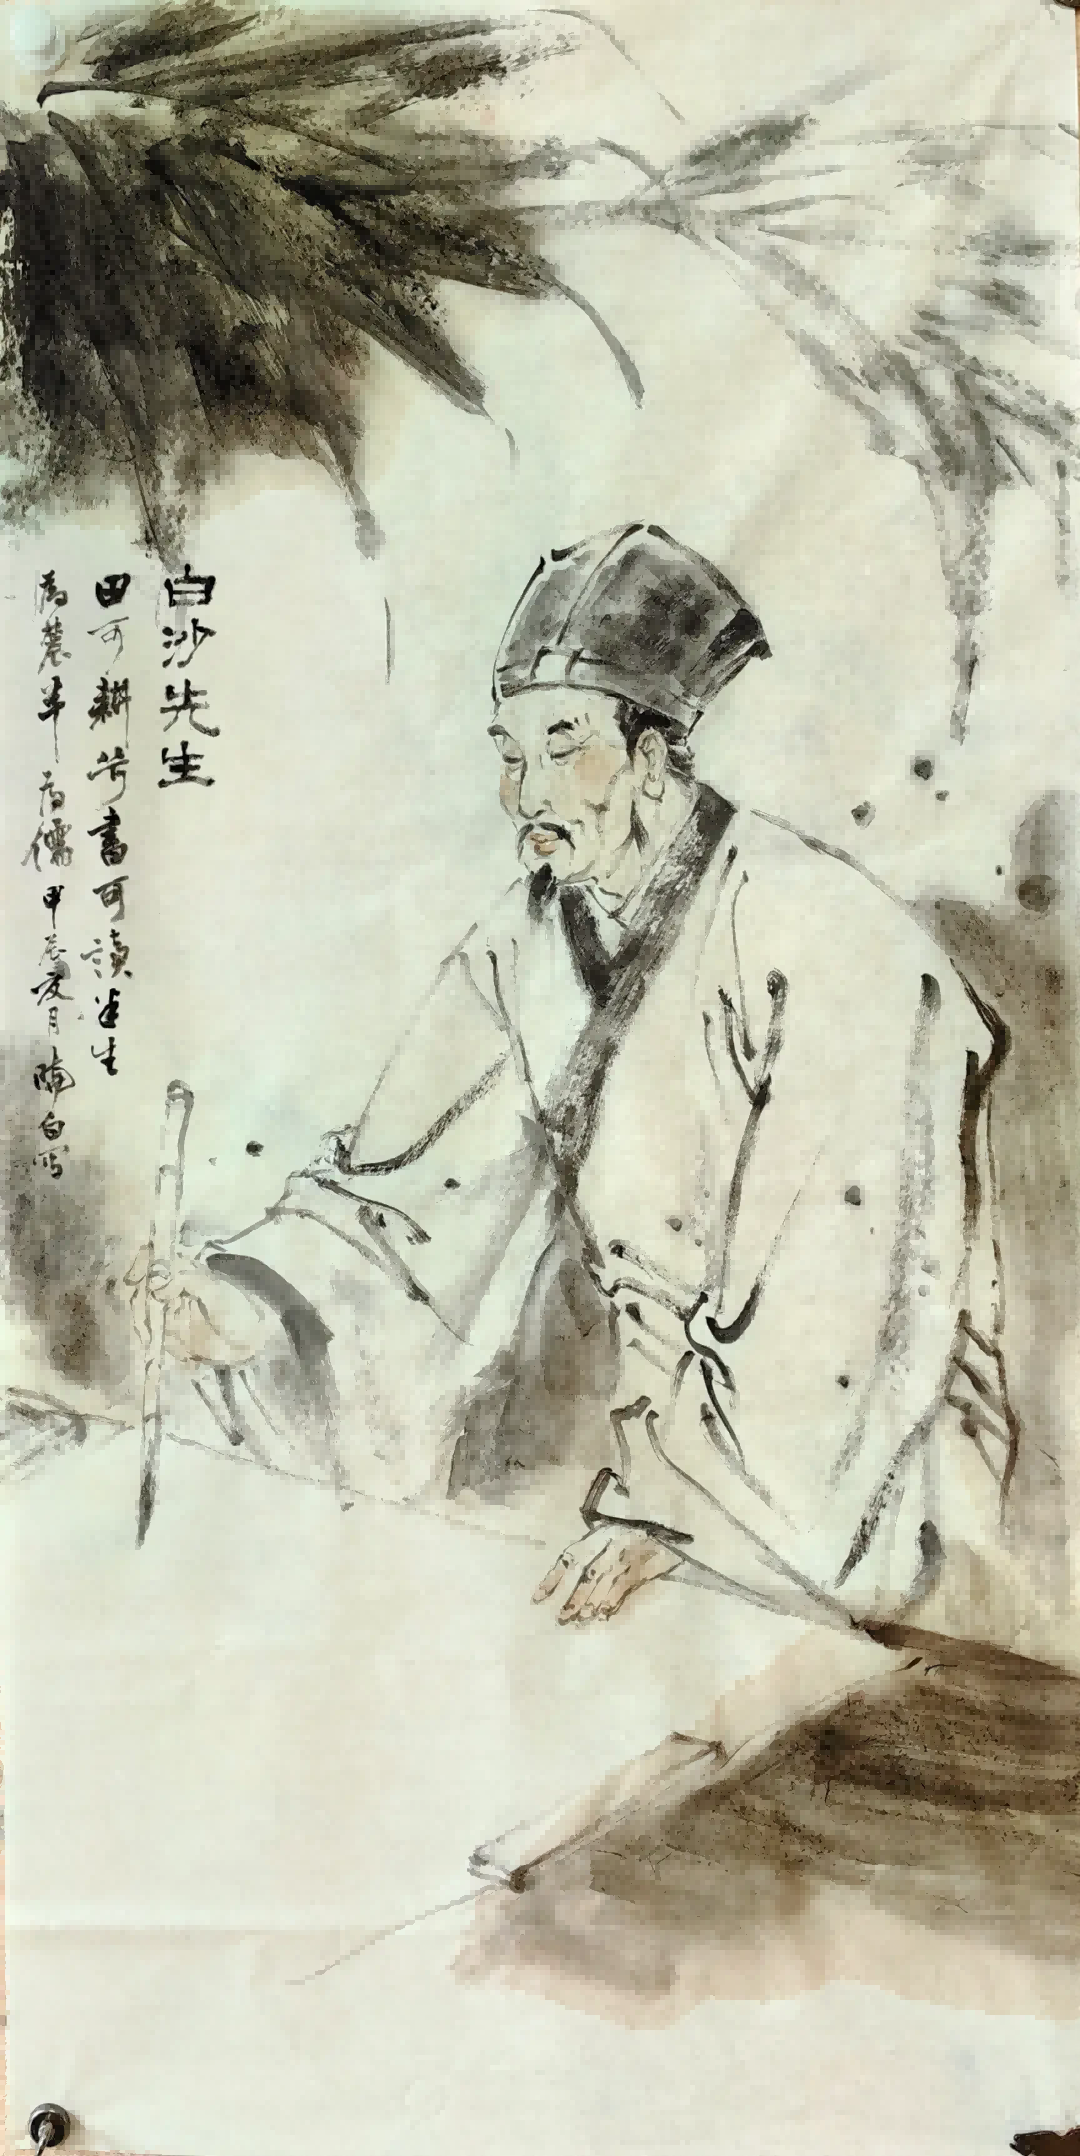 白沙先生
田可耕兮書可讀半生
為農半為儒甲辰夏月曉白寫